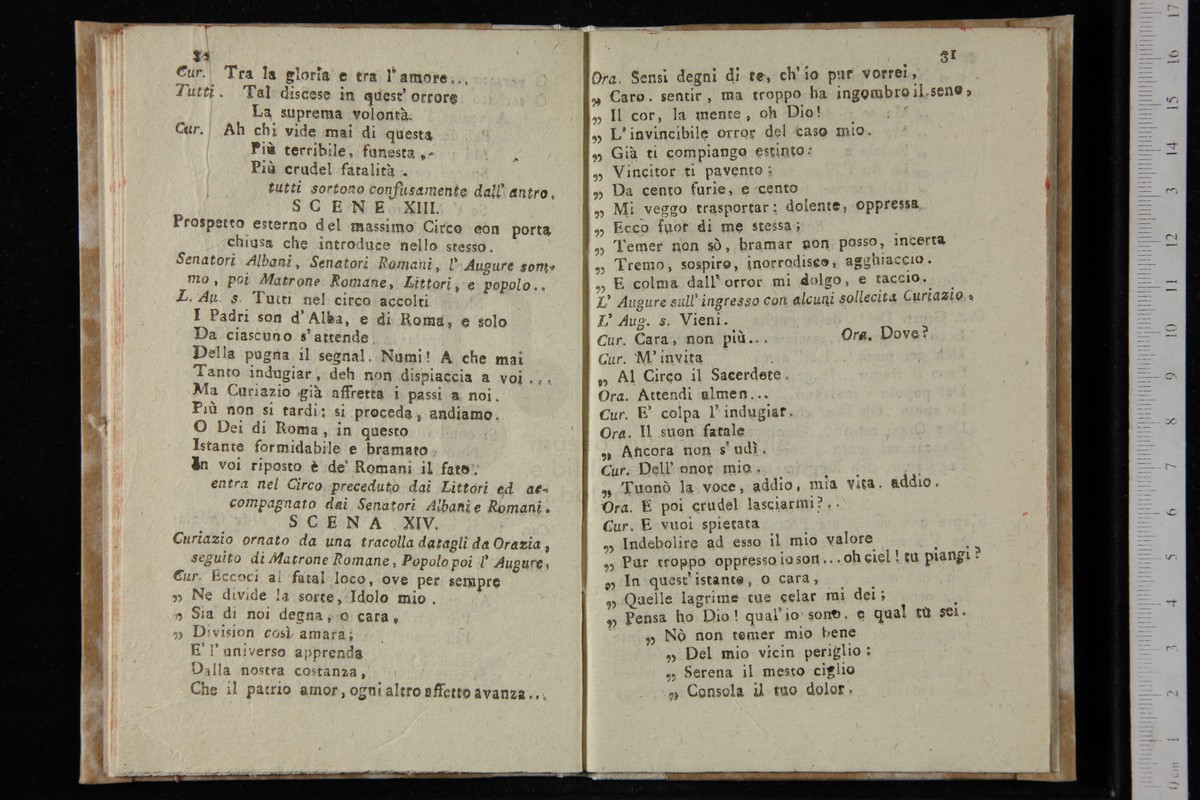 30
Cur. Tra la gloria e tra l'amore...
Tutti. Tal discese in quest' orrore
La suprema volontà.
Cur. Ah chi vide mai di questa
Più terribile, funesta,
Più crudel fatalità.
tutti sortono confusamente dall' antro.
SCENE XIII.
Prospetto esterno del massimo Circo con porta
chiusa che introduce nello stesso.
Senatori Albani, Senatori Romani, l' Augure som-
mo, poi Matrone Romane, Littori, e popolo..
L. Au. s. Tutti nel circo accolti
I Padri son d'Alba, e di Roma, e solo
Da ciascuno s'attende
Della pugna il segnal. Numi! A che mai
Tanto indugiar, deh non dispiaccia a voi...
Ma Curiazio già affretta i passi a noi.
Più non si tardi; si proceda, andiamo.
O Dei di Roma, in questo
Istante formidabile e bramato
In voi riposto è de' Romani il fato.
entra nel Circo preceduto dai Littori ed ac-
compagnato dai Senatori Albani e Romani.
SCENA XIV.
Curiazio ornato da una tracolla datagli da Orazia,
seguito di Matrone Romane, Popolo poi l' Augure,
Cur. Eccoci al fatal loco, ove per sempre
„ Ne divide la sorte, Idolo mio.
„ Sia di noi degna, o cara,
„ Division così amara;
E' l'universo apprenda
Dalla nostra costanza,
Che il patrio amor, ogni altro affetto avanza...
31
Ora. Sensi degni di te, ch'io pur vorrei,
„ Caro. sentir, ma troppo ha ingombro il seno,
„ Il cor, la mente, oh Dio!
„ L'invincibile orror del caso mio.
„ Già ti compiango estinto:
„ Vincitor ti pavento;
„ Da cento furie, e cento
„ Mi veggo trasportar; dolente, oppressa
„ Ecco fuor di me stessa;
„ Temer non sò, bramar non posso, incerta
„ Tremo, sospiro, inorrodisco, agghiaccio.
„ E colma dall' orror mi dolgo, e taccio.
L' Augure sull' ingresso con alcuni sollecita Curiazio.
L' Aug. s. Vieni.
Cur. Cara, non più... Ora. Dove?
Cur. M'invita
„ Al Circo il Sacerdote.
Ora. Attendi almen...
Cur. E' colpa l'indugiar.
Ora. Il suon fatale
„ Ancora non s'udì.
Cur. Dell' onor mio.
„ Tuonò la voce, addio, mia vita. addio.
Ora. E poi crudel lasciarmi?..
Cur. E vuoi spietata
„ Indebolire ad esso il mio valore
„ Pur troppo oppresso io son... oh ciel! tu piangi?
„ In quest' istante, o cara,
„ Quelle lagrime tue celar mi dei;
„ Pensa ho Dio! qual'io sono. e qual tù sei.
„ Nò non temer mio bene
„ Del mio vicin periglio;
„ Serena il mesto ciglio
„ Consola il tuo dolor.